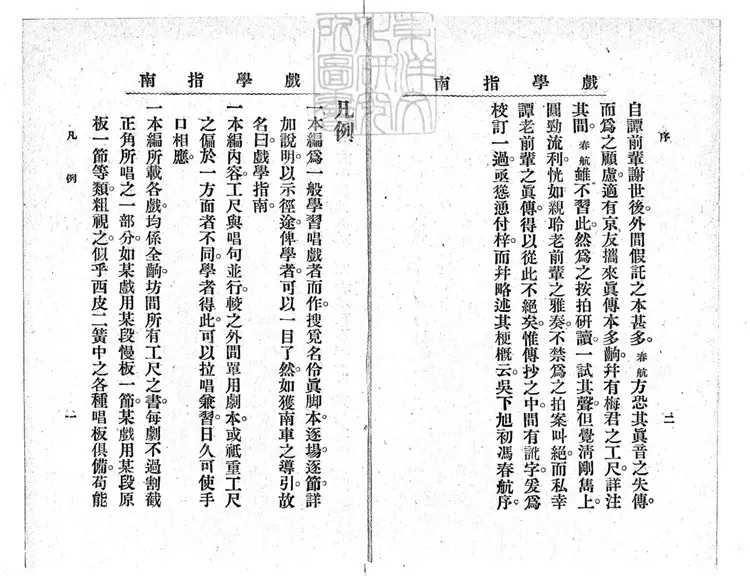 戲學指南
序
二
自譚前輩謝世後。外間假託之本甚多。春航方恐其眞音之失傳。
而爲之顧慮。適有京友攜來眞傳本多齣。幷有梅君之工尺。詳注
其間。春航雖不習此。然爲之按拍研讀。一試其聲。但覺清剛雋上。
圓勁流利。恍如親聆老前輩之雅奏。不禁爲之拍案叫絕。而私幸
譚老前輩之眞傳。得以從此不絕矣。惟傳抄之中。間有訛字。爰爲
校訂一過。亟慫慂付梓。而幷略述其梗概云。吳下旭初馮春航序。
戲學指南
凡例
一本編爲一般學習唱戲者而作。搜覓名伶眞脚本。逐場逐節。詳
加說明。以示徑途。俾學者。可以一目了然。如獲南車之導引。故
名曰戲學指南。
一本編內容。工尺與唱句並行。較之外間單用劇本。或祇重工尺
之偏於一方面者不同。學者得此。可以拉唱兼習。日久可使手
口相應。
一本編所載各戲。均係全齣。坊間所有工尺之書。每劇不過割截
正角所唱之一部分。如某戲用某段慢板一節。某戲用某段原
板一節等類。粗視之。似乎西皮二簧中之各種唱板俱備。苟能
凡例
一